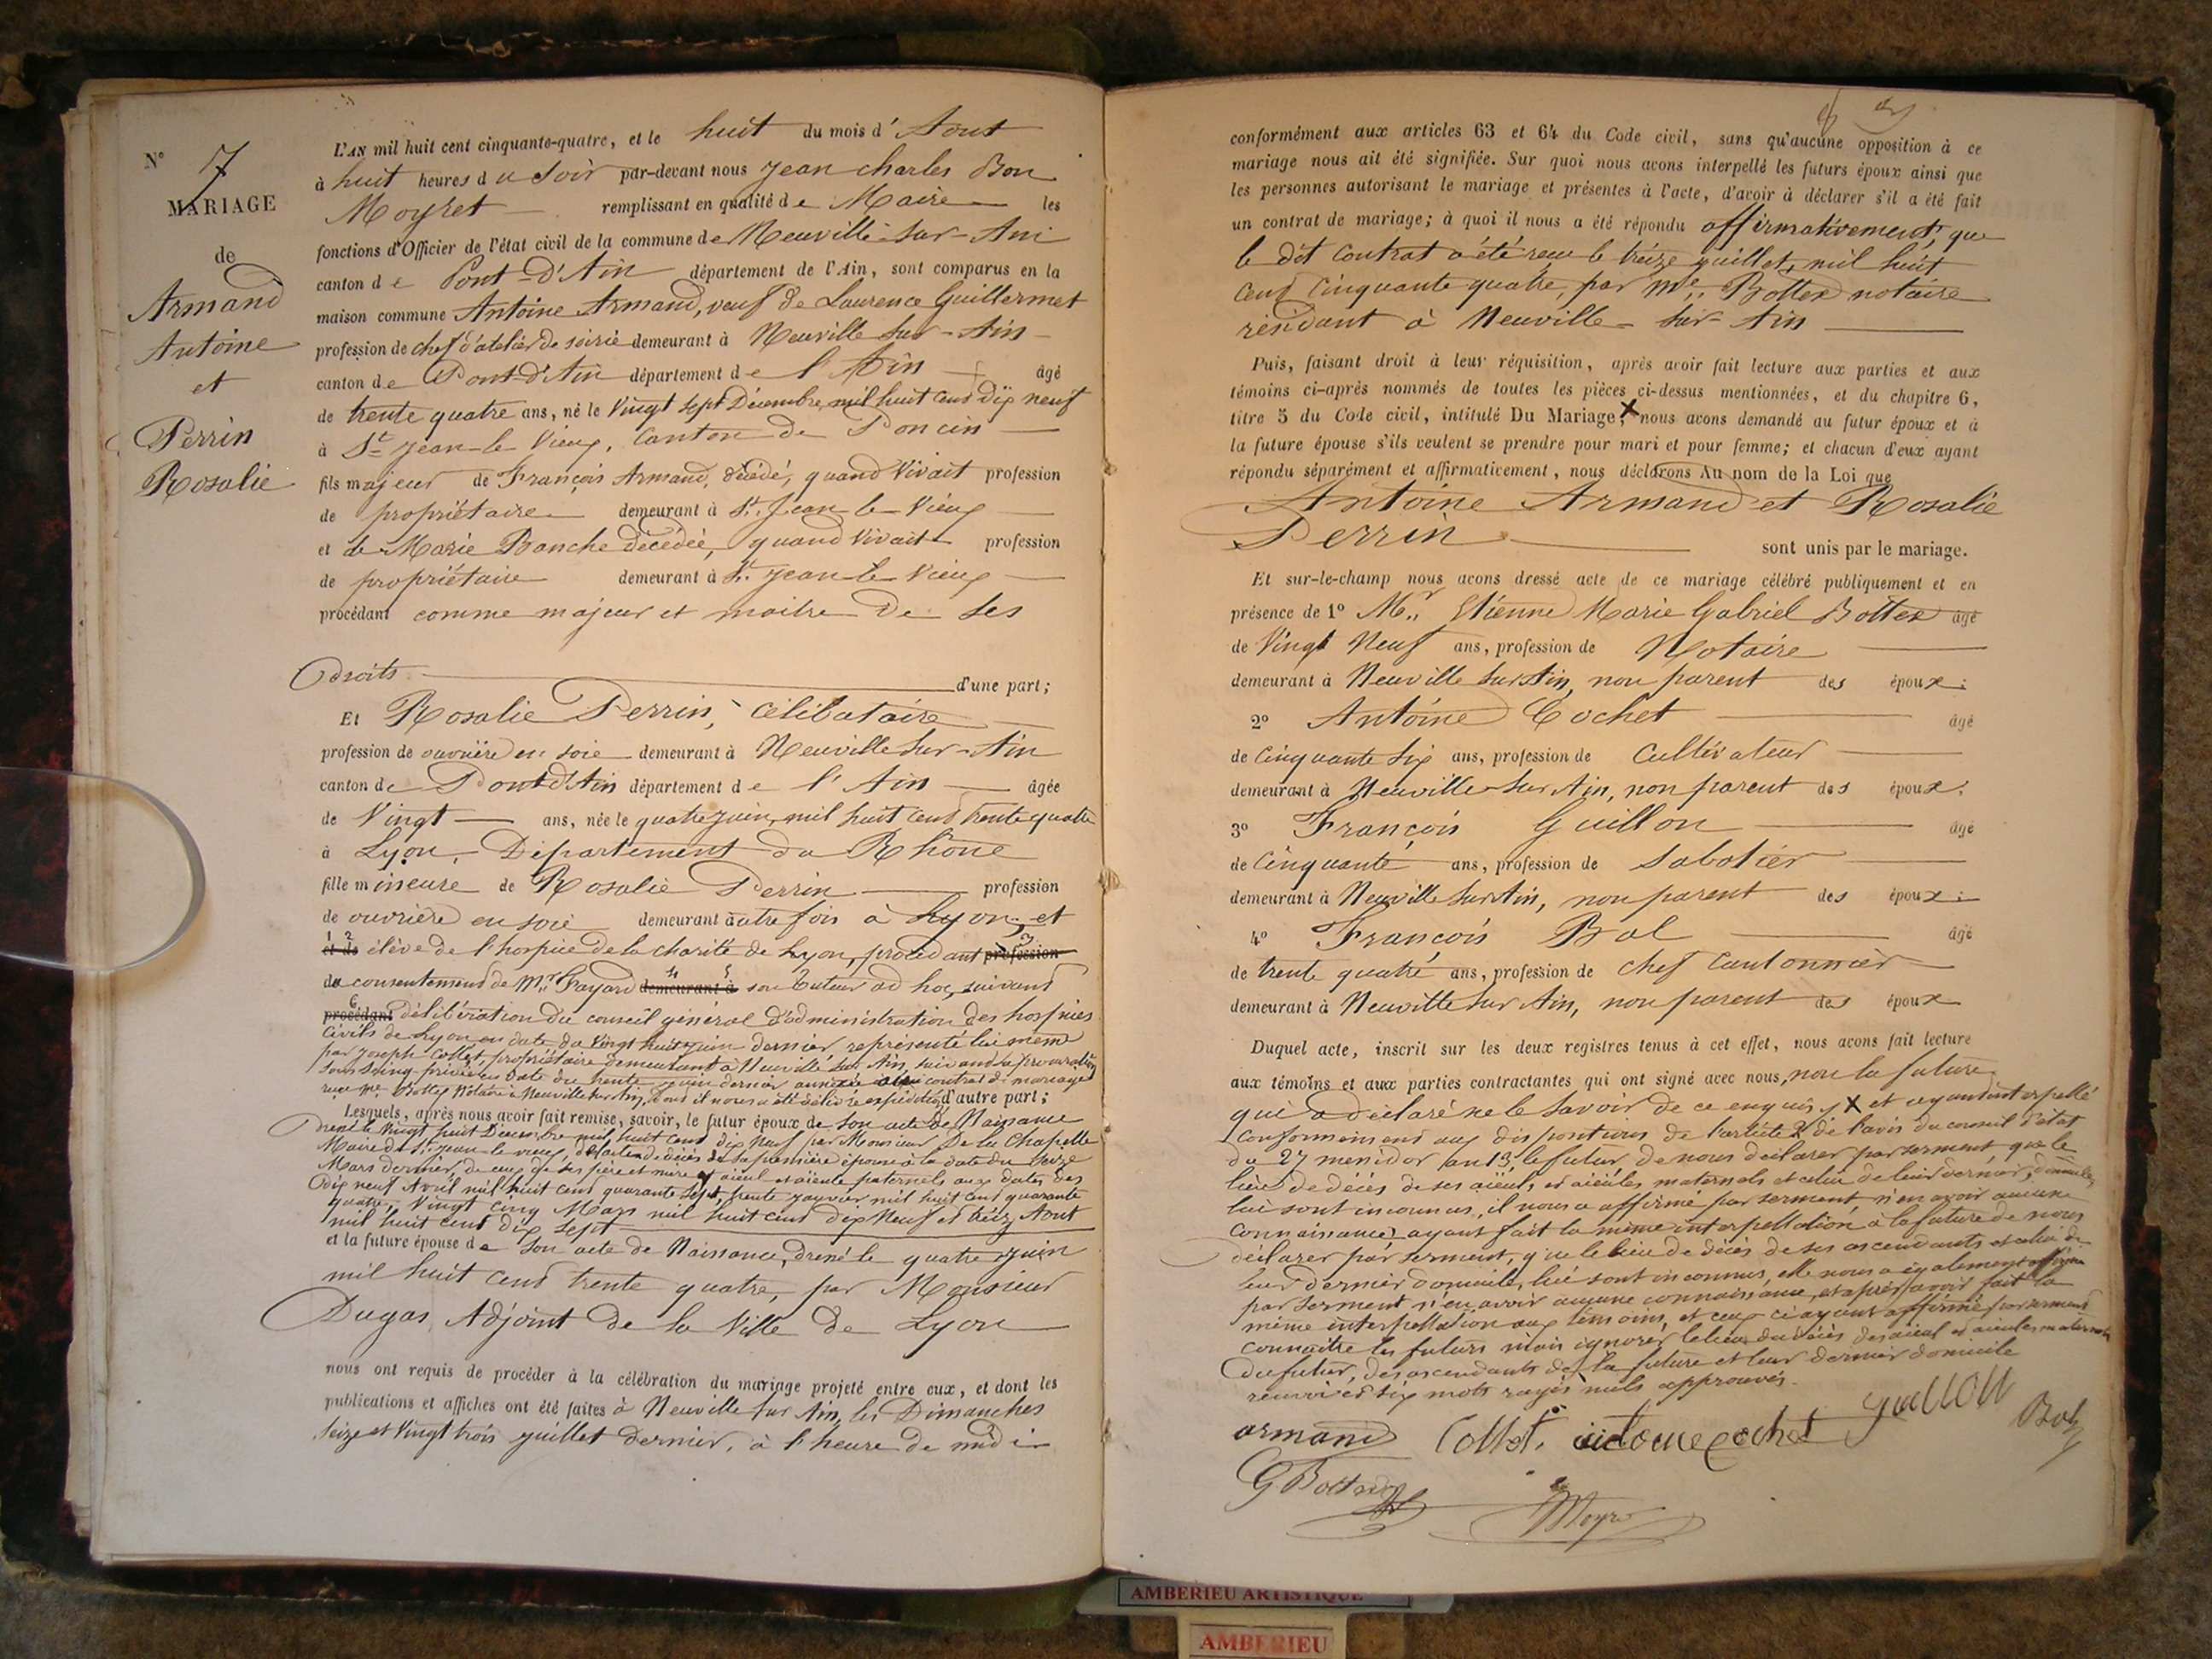 N° 7
MARIAGE
de
Armand
Antoine
et
Perrin
Rosalie
L'AN mil huit cent cinquante-quatre, et le huit du mois d'Aout
à huit heures du Soir par-devant nous Jean charles Bon
Moyret remplissant en qualité de Maire les
fonctions d'Officier de l'état civil de la commune de Neuville-sur-Ain
canton de Pont-d'Ain département de l'Ain, sont comparus en la
maison commune Antoine Armand, veuf de Laurence Guillermet
profession de chef d'atelier de soirie demeurant à Neuville sur-Ain
canton de Pont-d'Ain département de l'Ain âgé
de trente quatre ans, né le Vingt sept Décembre mil huit cent dix neuf
à St Jean-le Vieux, canton de Poncin
fils majeur de François Armand, décédé, quand Vivait profession
de propriétaire demeurant à St. Jean-le-Vieux
et de Marie Banche décédée, quand Vivait profession
de propriétaire demeurant à St. Jean-le Vieux
procédant comme majeur et maitre de ses
droits d'une part;
Et Rosalie Perrin, célibataire
profession de ouvrière en soie demeurant à Neuville sur-Ain
canton de Pont d'Ain département de l'Ain âgée
de Vingt ans, née le quatre juin, mil huit cent trente quatre
à Lyon, Département du Rhône
fille mineure de Rosalie Perrin profession
de ouvrière en soie demeurant autre fois à Lyon, et
1 2 et de élève de l'hospice de la charité de Lyon, procédant 3 profession
du consentement de Mr. Fayard 4 5 demeurant à son tuteur ad hoc, suivant
6 procédant délibération du conseil général d'administration des hospices
civils de Lyon en date du Vingt huit juin dernier représenté lui même
par Joseph Collet, propriétaire demeurant à Neuville sur Ain, suivant la procuration
sous seing privé en date du trente juin dernier annexée au contrat de mariage
reçu Me Bottex Notaire à Neuville sur Ain, dont il nous a été délivré expédition d'autre part;
Lesquels, après nous avoir fait remise, savoir, le futur époux de son acte de Naissance
dressé le Vingt huit Décembre mil huit cent dix neuf par Monsieur De la Chapelle
Maire de St. Jean-le vieux, de l'acte de décès de sa première épouse à la date du seize
Mars dernier, de ceux de ses père et mère, aieul et aieule paternels aux dates des
dix neuf Avril mil huit cent quarante sept, trente janvier mil huit cent quarante
quatre, Vingt cinq Mars mil huit cent dix Neuf et treize Aout
mil huit cent dix sept
et la future épouse de son acte de Naissance, dressé le quatre juin
mil huit cent trente quatre, par Monsieur
Dugas Adjoint de la Ville de Lyon
nous ont requis de procéder à la célébration du mariage projeté entre eux, et dont les
publications et affiches ont été faites à Neuville sur Ain, les Dimanches
seize et Vingt trois juillet dernier, à l'heure de midi
conformément aux articles 63 et 64 du Code civil, sans qu'aucune opposition à ce
mariage nous ait été signifiée. Sur quoi nous avons interpellé les futurs époux ainsi que
les personnes autorisant le mariage et présentes à l'acte, d'avoir à déclarer s'il a été fait
un contrat de mariage; à quoi il nous a été répondu affirmativement, que
le dit contrat a été reçu le treize juillet, mil huit
cent cinquante quatre, par Me. Bottex notaire
résidant à Neuville-sur-Ain
Puis, faisant droit à leur réquisition, après avoir fait lecture aux parties et aux
témoins ci-après nommés de toutes les pièces ci-dessus mentionnées, et du chapitre 6,
titre 5 du Code civil, intitulé Du Mariage, X nous avons demandé au futur époux et à
la future épouse s'ils veulent se prendre pour mari et pour femme; et chacun d'eux ayant
répondu séparément et affirmativement, nous déclarons Au nom de la Loi que
Antoine Armand et Rosalie
Perrin sont unis par le mariage.
Et sur-le-champ nous avons dressé acte de ce mariage célébré publiquement et en
présence de 1° Mr. Etienne Marie Gabriel Bottex âgé
de Vingt Neuf ans, profession de Notaire
demeurant à Neuville sur Ain, non parent des époux;
2° Antoine Cochet âgé
de cinquante six ans, profession de cultivateur
demeurant à Neuville sur Ain, non parent des époux;
3° François Guillon âgé
de cinquante ans, profession de sabotier
demeurant à Neuville sur Ain, non parent des époux;
4° François Bal âgé
de trente quatre ans, profession de chef cantonnier
demeurant à Neuville sur Ain, non parent des époux
Duquel acte, inscrit sur les deux registres tenus à cet effet, nous avons fait lecture
aux témoins et aux parties contractantes qui ont signé avec nous, non la future
qui a déclaré ne le savoir de ce enquis, X et ayant interpellé
conformément aux dispositions de l'article 2 de l'avis du conseil d'état
du 27 messidor an 13, le futur de nous déclarer par serment que le
lieu de décès de ses aïeuls et aieules maternels et celui de leur dernier domicile
lui sont inconnus, il nous a affirmé par serment n'en avoir aucune
connaissance, ayant fait la même interpellation à la future de nous
déclarer par serment, que le lieu de décès de ses ascendants et celui de
leur dernier domicile, lui sont inconnus, elle nous a également affirmé
par serment n'en avoir aucune connaissance, et après avoir fait la
même interpellation aux témoins, et ceux ci ayant affirmé par serment
connaitre les futurs mais ignorer le lieu du décès des aieul et aieules maternels
du futur, des ascendants de la future et leur dernier domicile
renvoi et six mots rayés nuls approuvés.
armand Collet antoine cochet guillon Bal
G. Bottex Moyret
AMBERIEU ARTISTIQUE
AMBERIEU